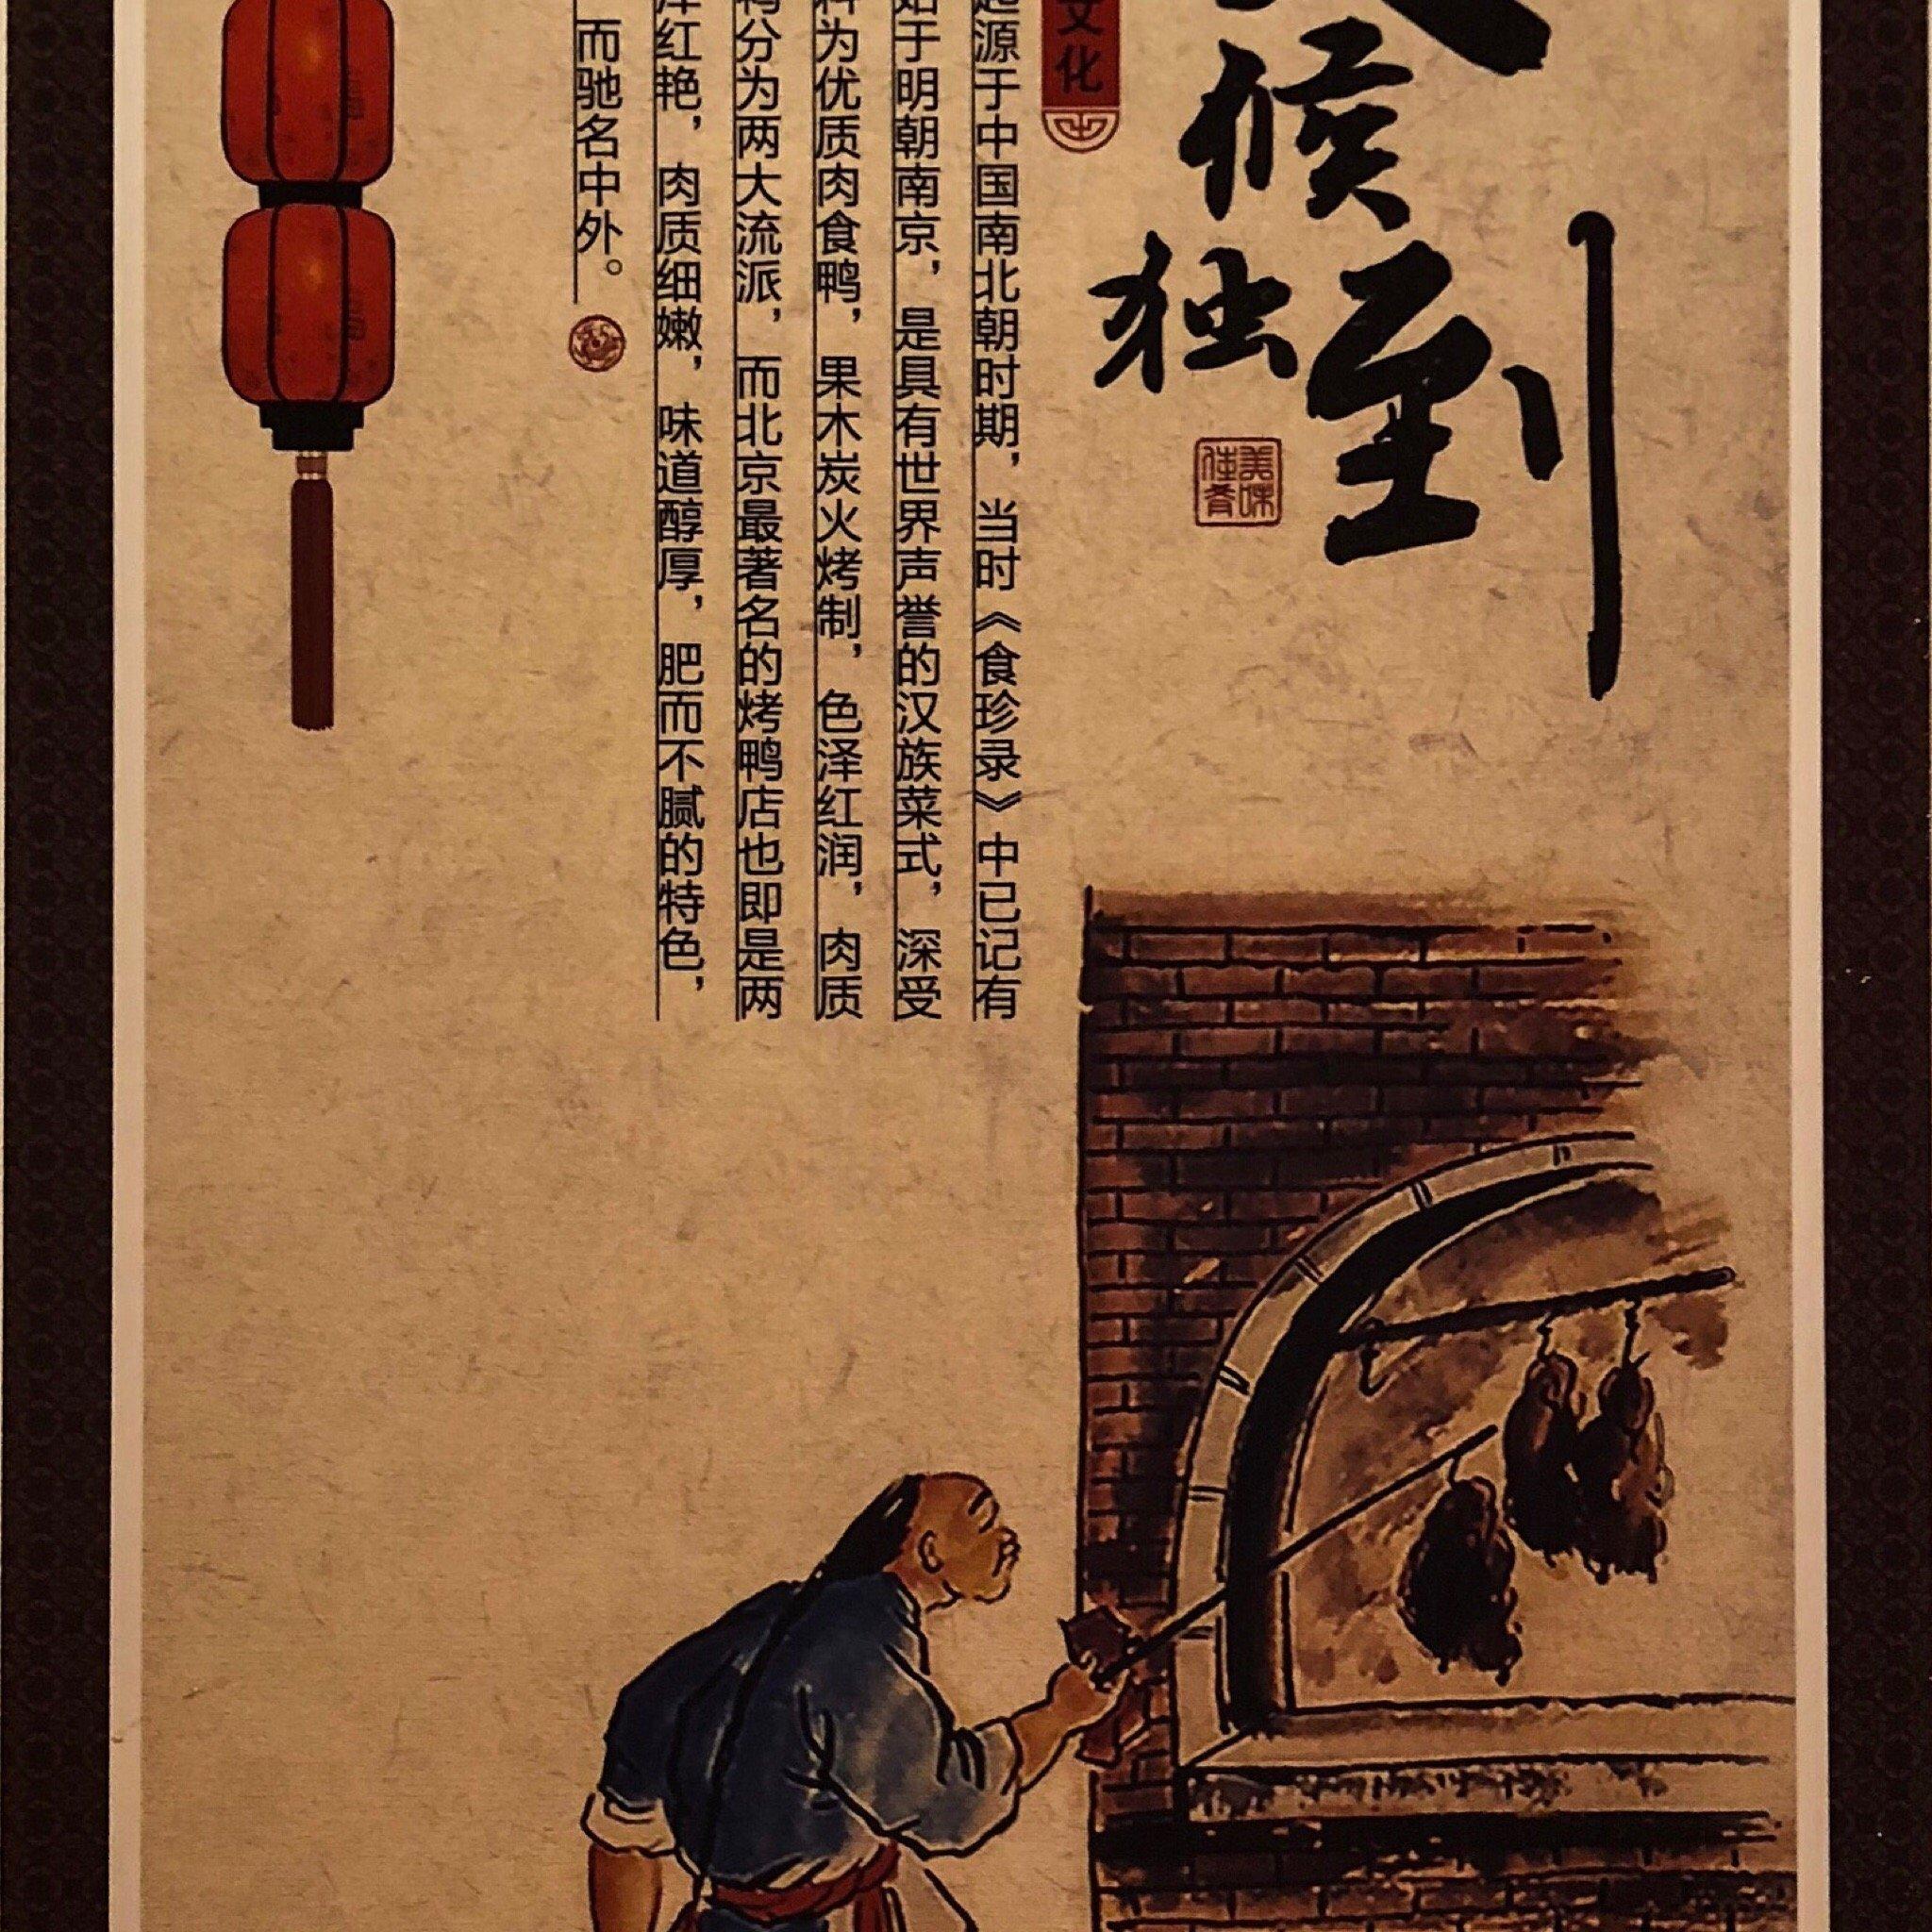 候
独到
美味佳肴
文化
源于中国南北朝时期，当时《食珍录》中已记有
于明朝南京，是具有世界声誉的汉族菜式，深受
为优质肉食鸭，果木炭火烤制，色泽红润，肉质
分为两大流派，而北京最著名的烤鸭店也即是两
红艳，肉质细嫩，味道醇厚，肥而不腻的特色，
而驰名中外。